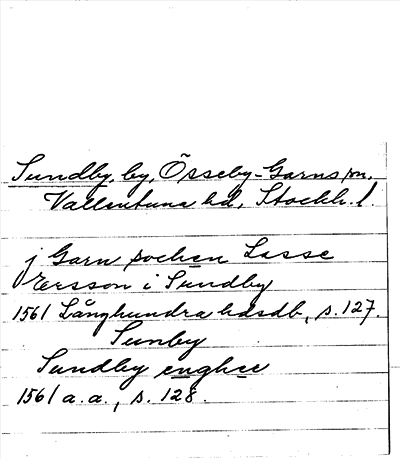 Sundby, by, Össeby-Garns sn,
Vallentuna hd, Stockh. l.
j Garn sochen Lasse
Ersson i Sundby
1561 Långhundra hdsdb, s. 127.
Sunby
Sundby enghee
1561 a. a., s. 128.